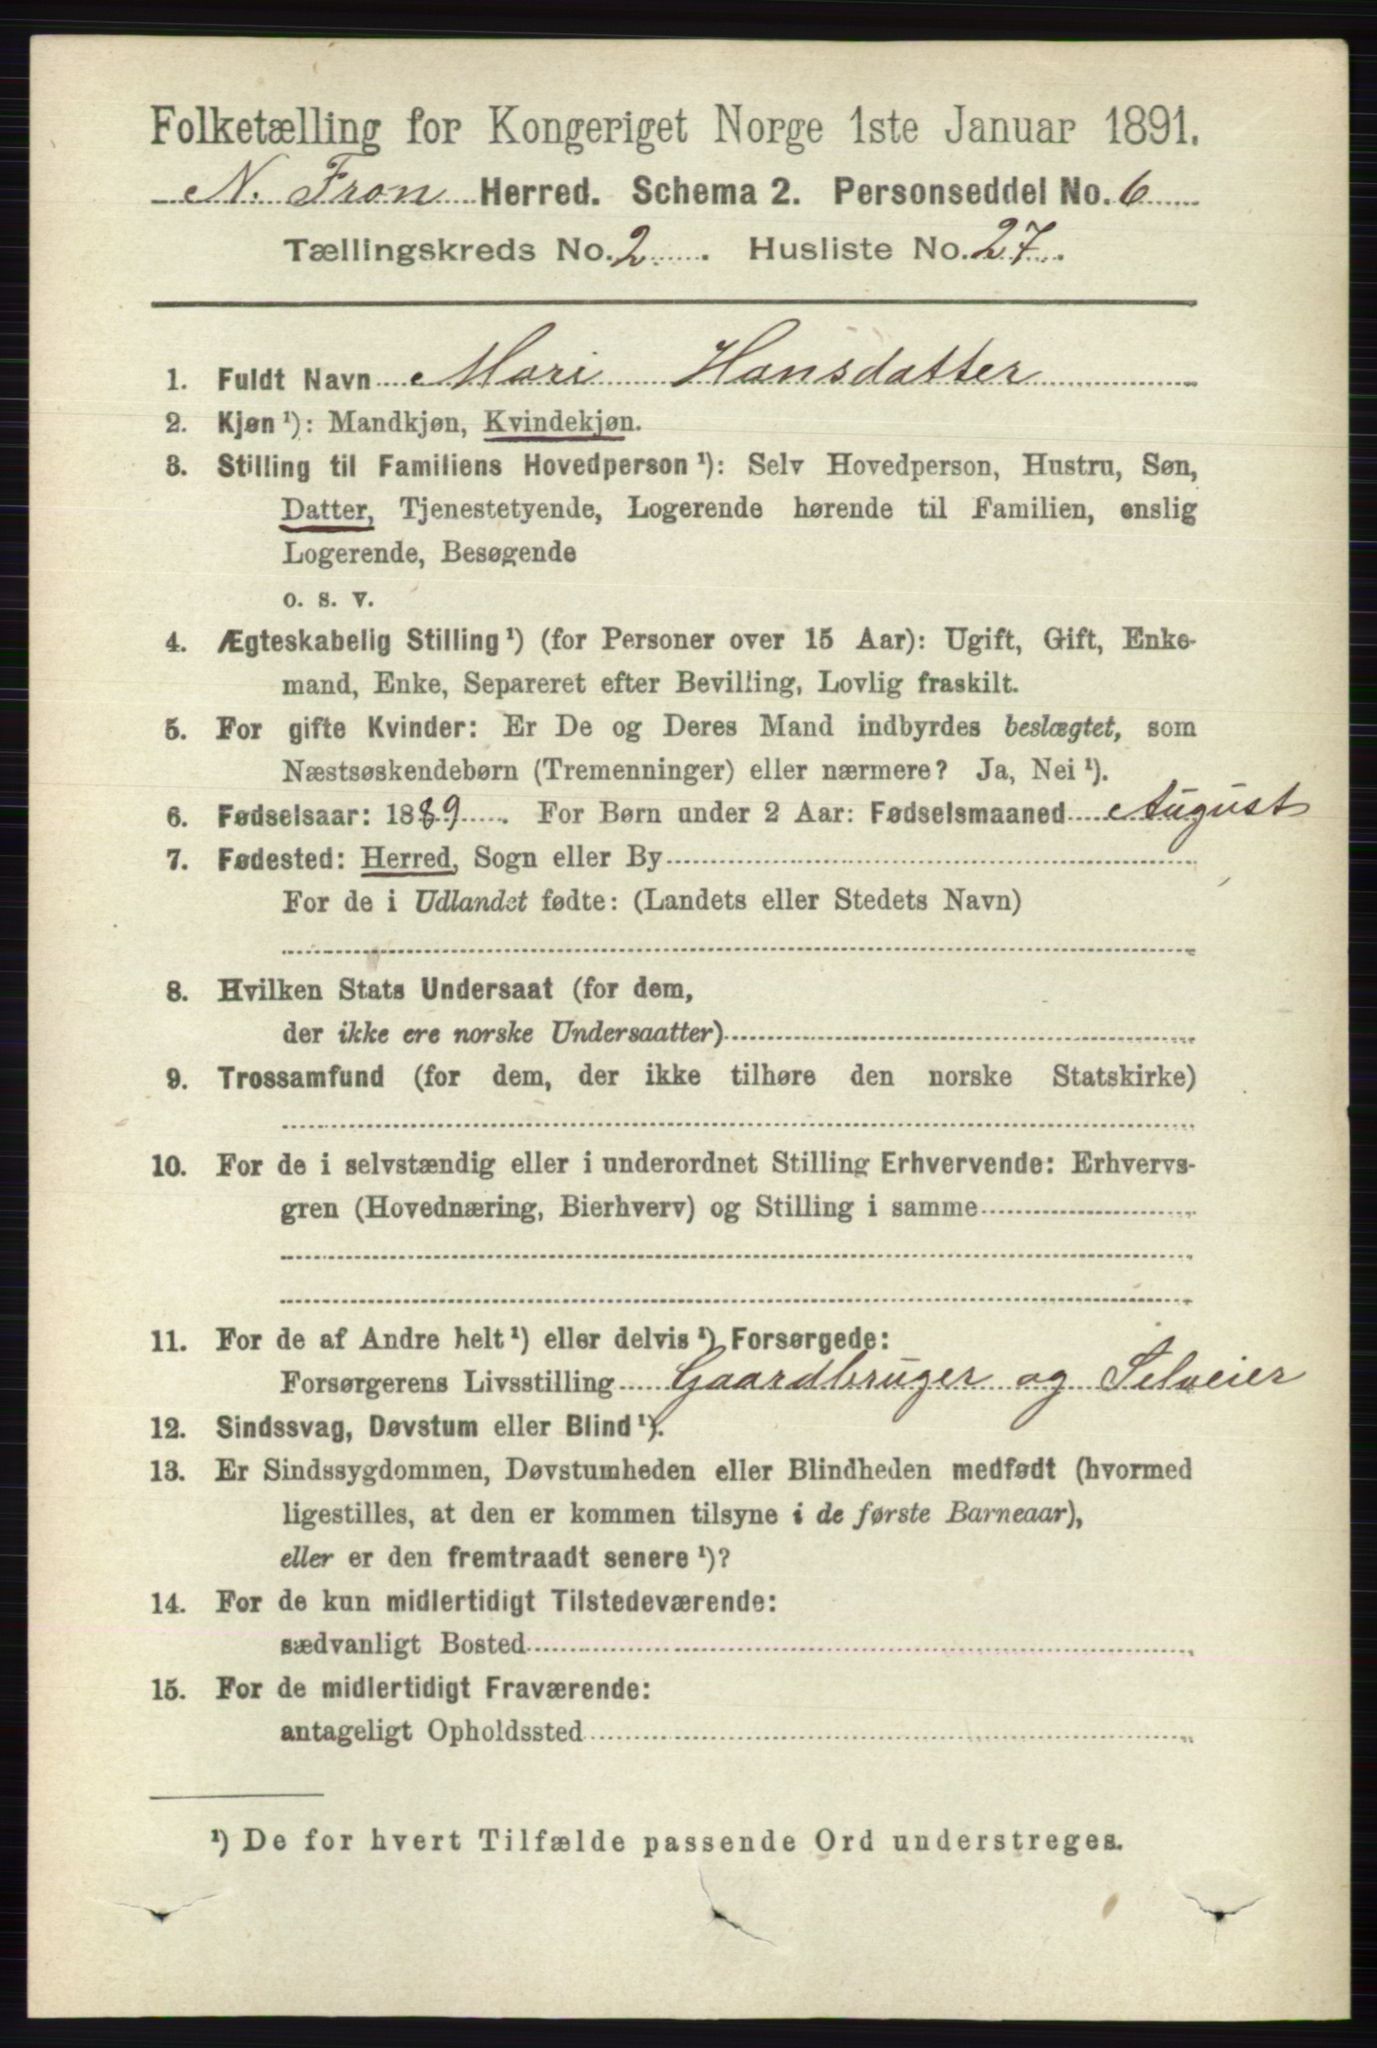 Folketælling for Kongeriget Norge 1ste Januar 1891.
N. Fron Herred. Schema 2. Personseddel No. 6
Tællingskreds No. 2. Husliste No. 27.
1. Fuldt Navn Mari Hansdatter
2. Kjøn ¹): Mandkjøn, Kvindekjøn.
3. Stilling til Familiens Hovedperson ¹): Selv Hovedperson, Hustru, Søn,
Datter, Tjenestetyende, Logerende hørende til Familien, enslig
Logerende, Besøgende
o. s. v.
4. Ægteskabelig Stilling ¹) (for Personer over 15 Aar): Ugift, Gift, Enke-
mand, Enke, Separeret efter Bevilling, Lovlig fraskilt.
5. For gifte Kvinder: Er De og Deres Mand indbyrdes beslægtet, som
Næstsøskendebørn (Tremenninger) eller nærmere? Ja, Nei ¹).
6. Fødselsaar: 1889. For Børn under 2 Aar: Fødselsmaaned August
7. Fødested: Herred, Sogn eller By
For de i Udlandet fødte: (Landets eller Stedets Navn)
8. Hvilken Stats Undersaat (for dem,
der ikke ere norske Undersaatter)
9. Trossamfund (for dem, der ikke tilhøre den norske Statskirke)
10. For de i selvstændig eller i underordnet Stilling Erhvervende: Erhvervs-
gren (Hovednæring, Bierhverv) og Stilling i samme
11. For de af Andre helt ¹) eller delvis ¹) Forsørgede:
Forsørgerens Livsstilling Gaardbruger og Selveier
12. Sindssvag, Døvstum eller Blind ¹).
13. Er Sindssygdommen, Døvstumheden eller Blindheden medfødt (hvormed
ligestilles, at den er kommen tilsyne i de første Barneaar),
eller er den fremtraadt senere ¹)?
14. For de kun midlertidigt Tilstedeværende:
sædvanligt Bosted
15. For de midlertidigt Fraværende:
antageligt Opholdssted
¹) De for hvert Tilfælde passende Ord understreges.